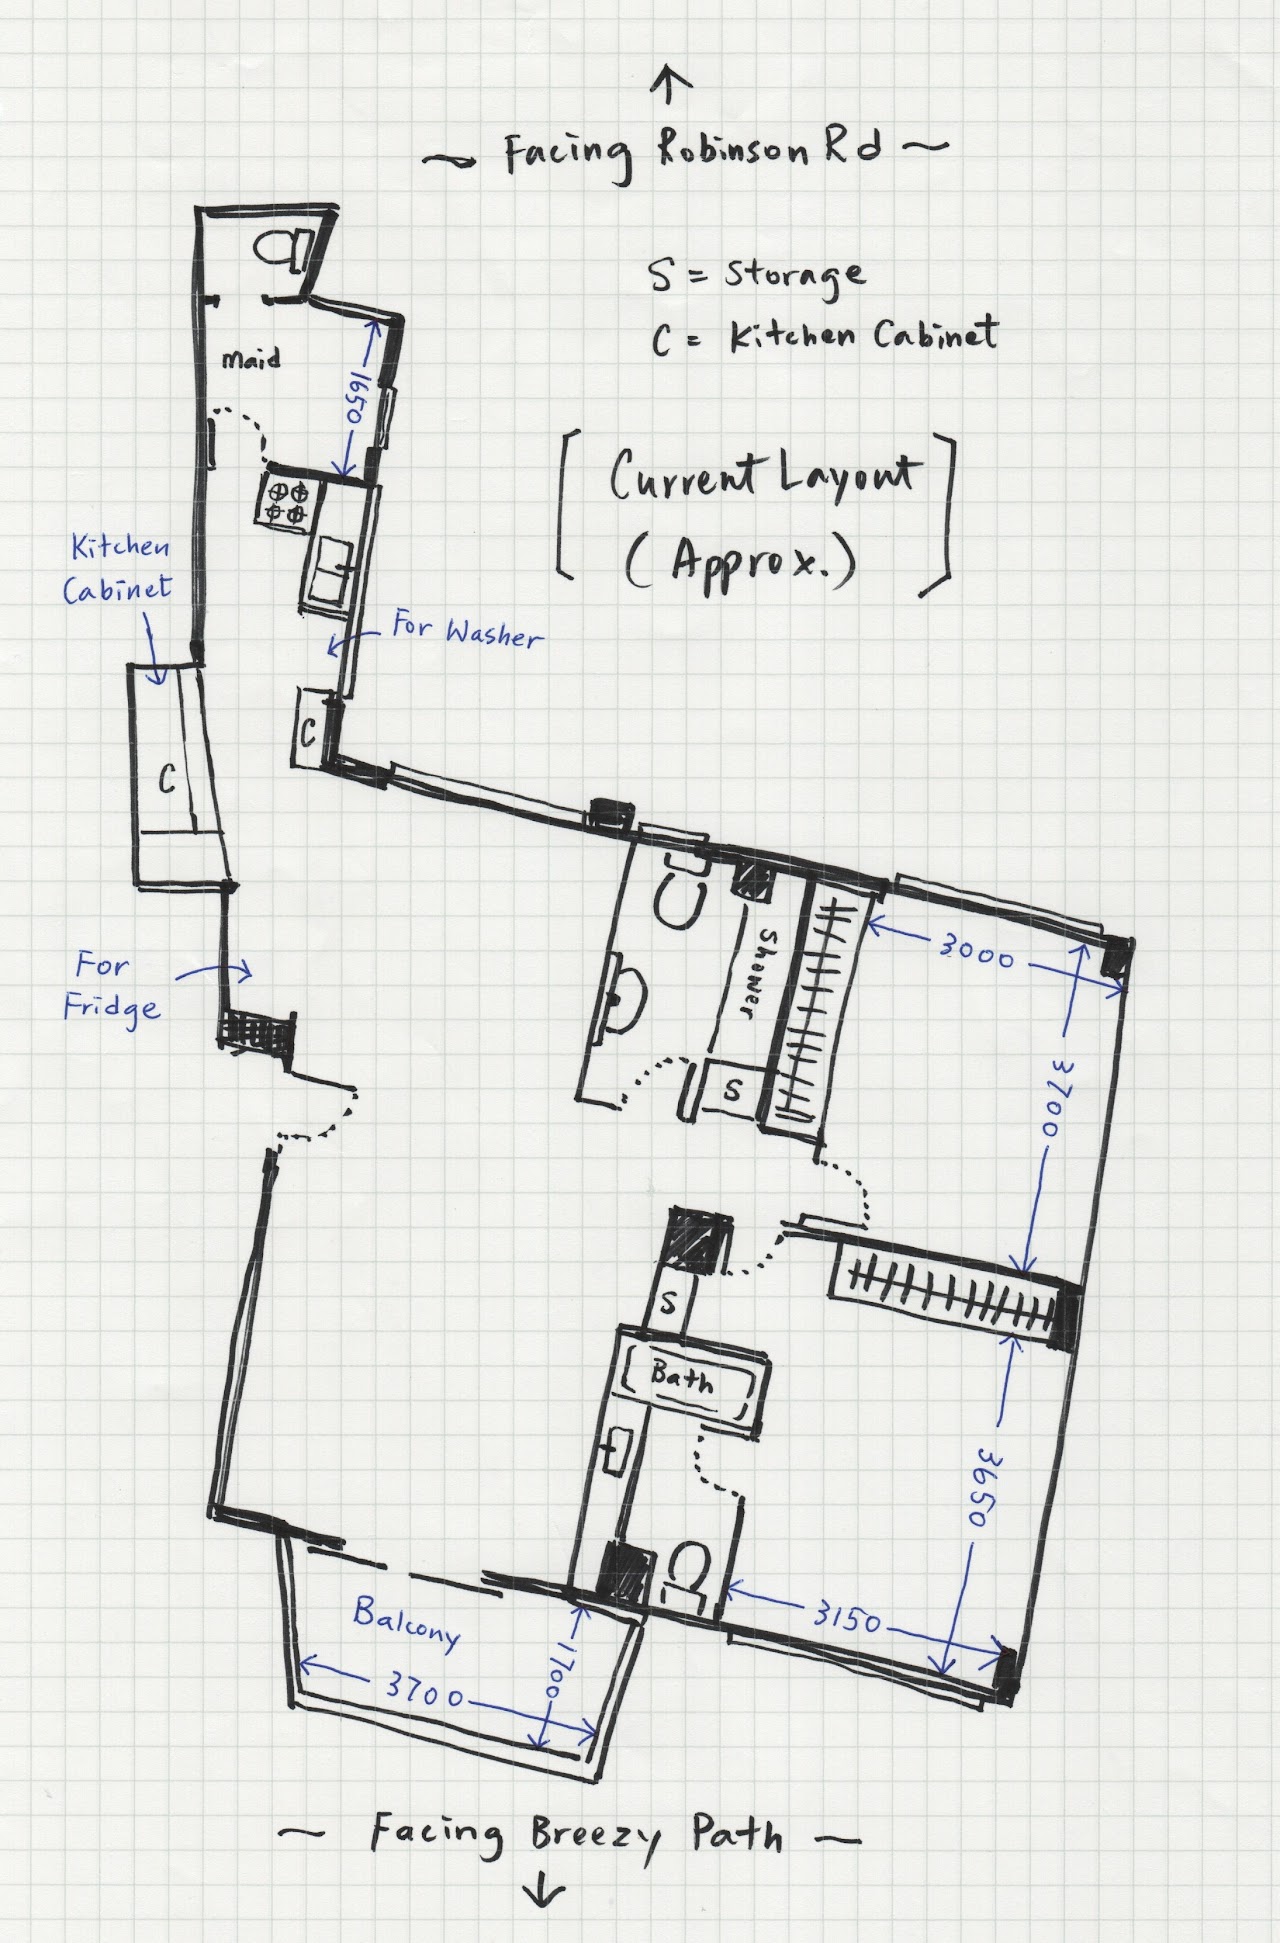 ~ Facing Robinson Rd ~
S = Storage
C = Kitchen Cabinet
maid
1650
[ Current Layout
(Approx.) ]
Kitchen
Cabinet
For Washer
C
C
For
Fridge
Shower
3000
3700
S
S
Bath
3650
3150
Balcony
1700
3700
~ Facing Breezy Path ~